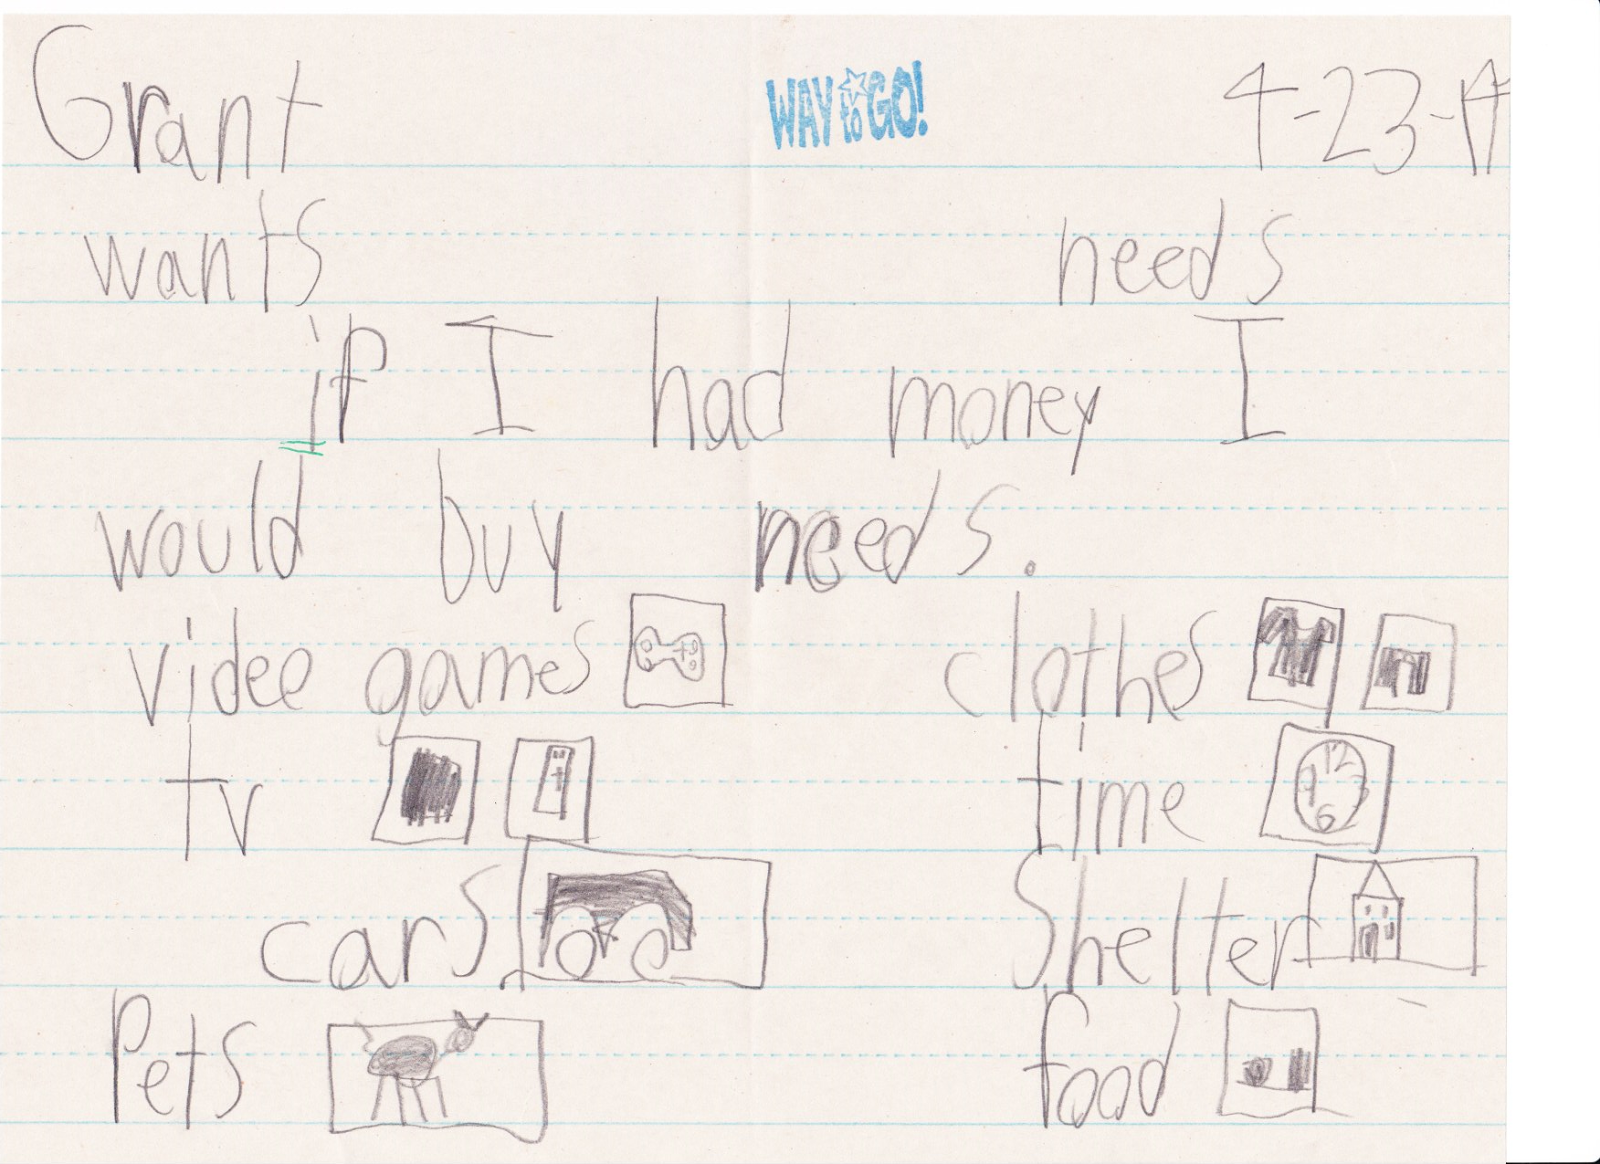 Grant WAY to GO! 4-23-14
wants needs
if I had money I
would buy needs.
video games clothes
tv time
cars Shelter
Pets food